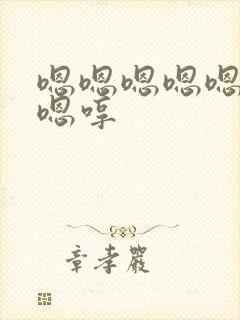 嗯嗯嗯嗯嗯
嗯哼
章孝严